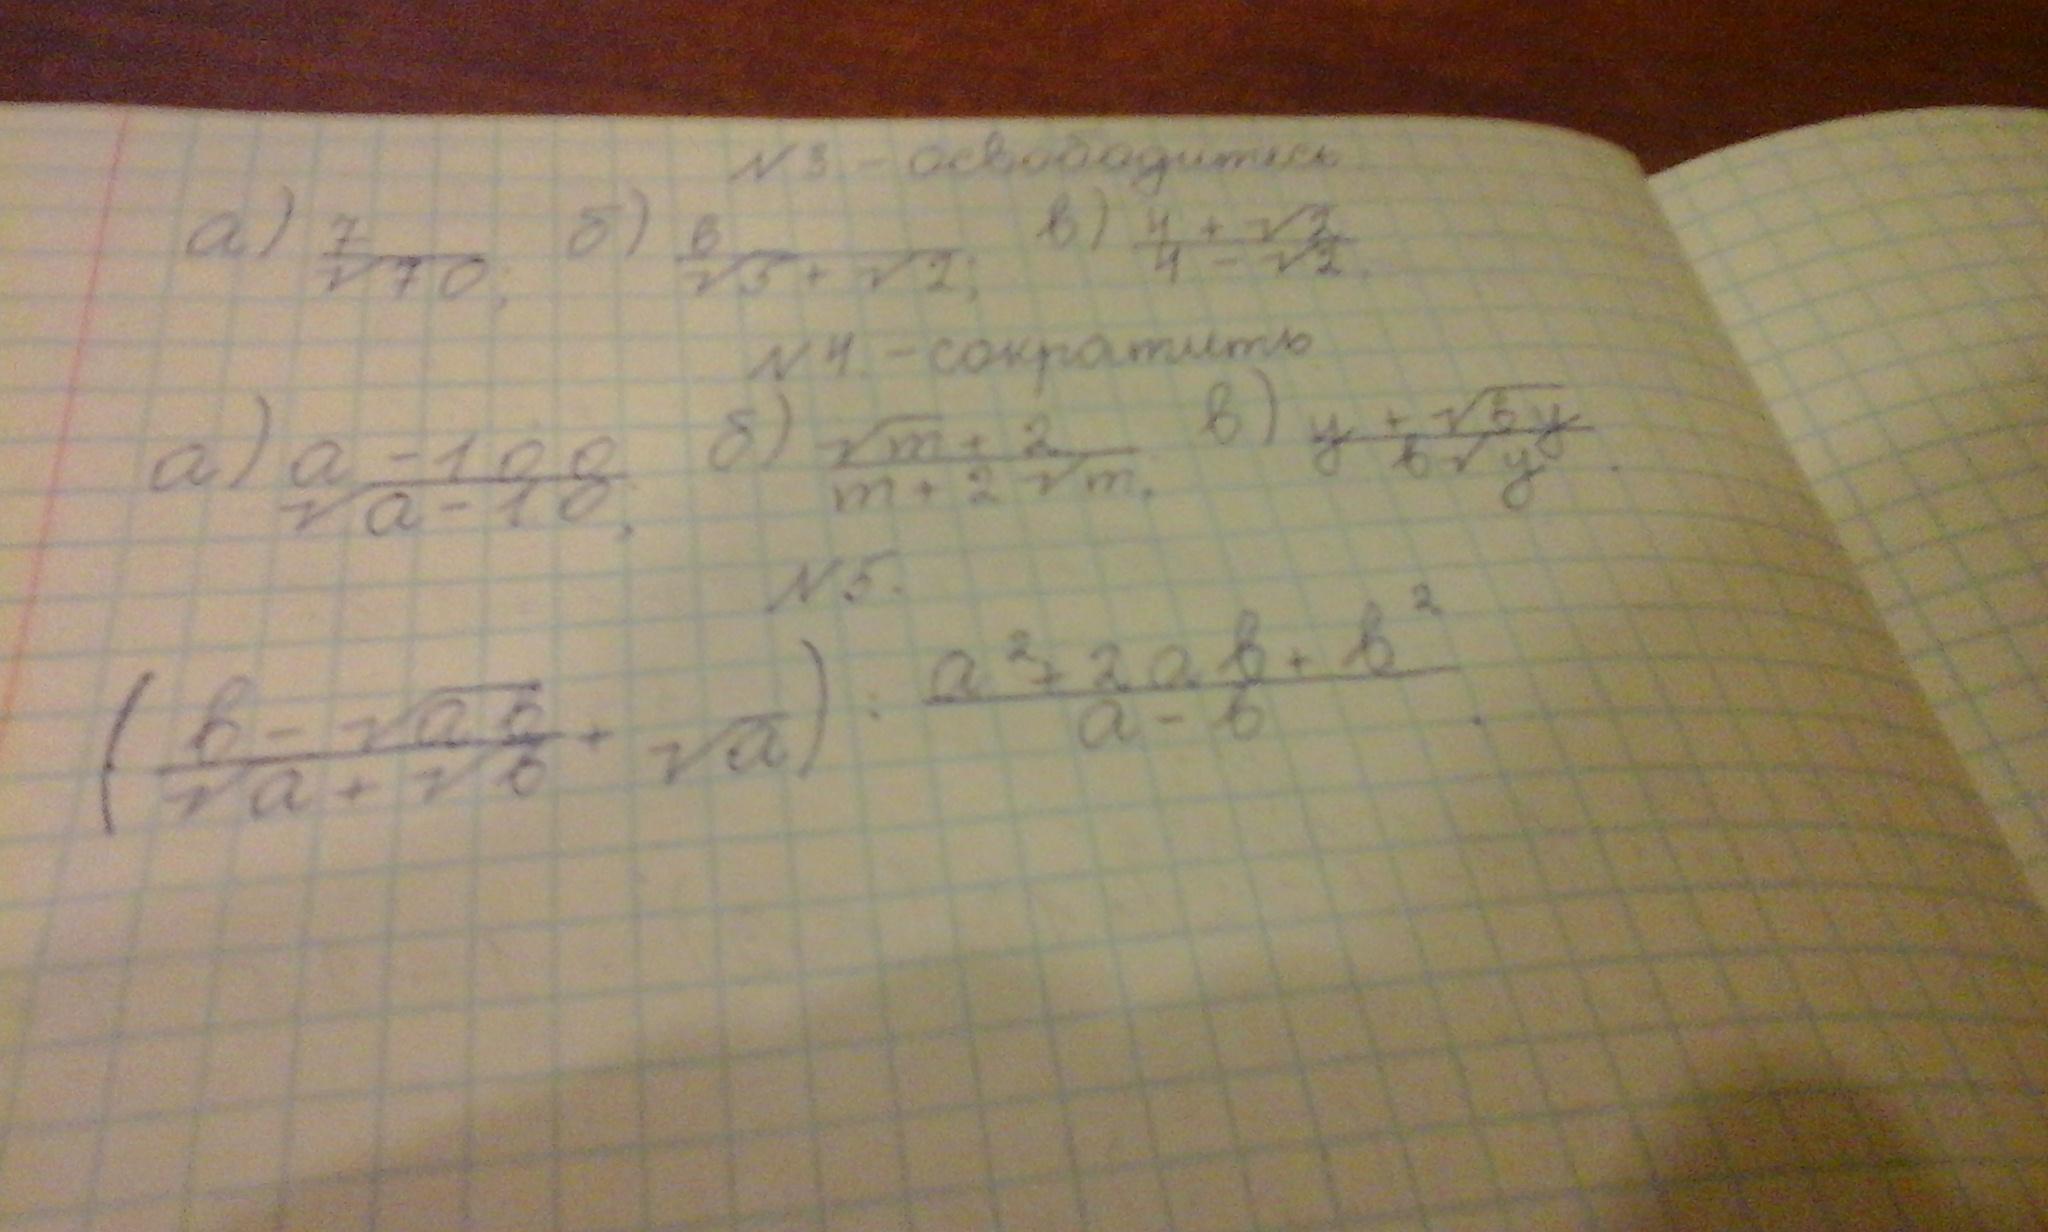 N3. - освободитесь.
а) 7/√70; б) 6/(√5 + √2); в) (4 + √2)/(4 - √2).
N4. - сократить
а) (a - 100)/(√a - 10); б) (√m + 2)/(m + 2√m). в) (y + √by)/(b√y).
N5.
((b - √ab)/(√a + √b) + √a) : (a² + 2ab + b²)/(a - b).